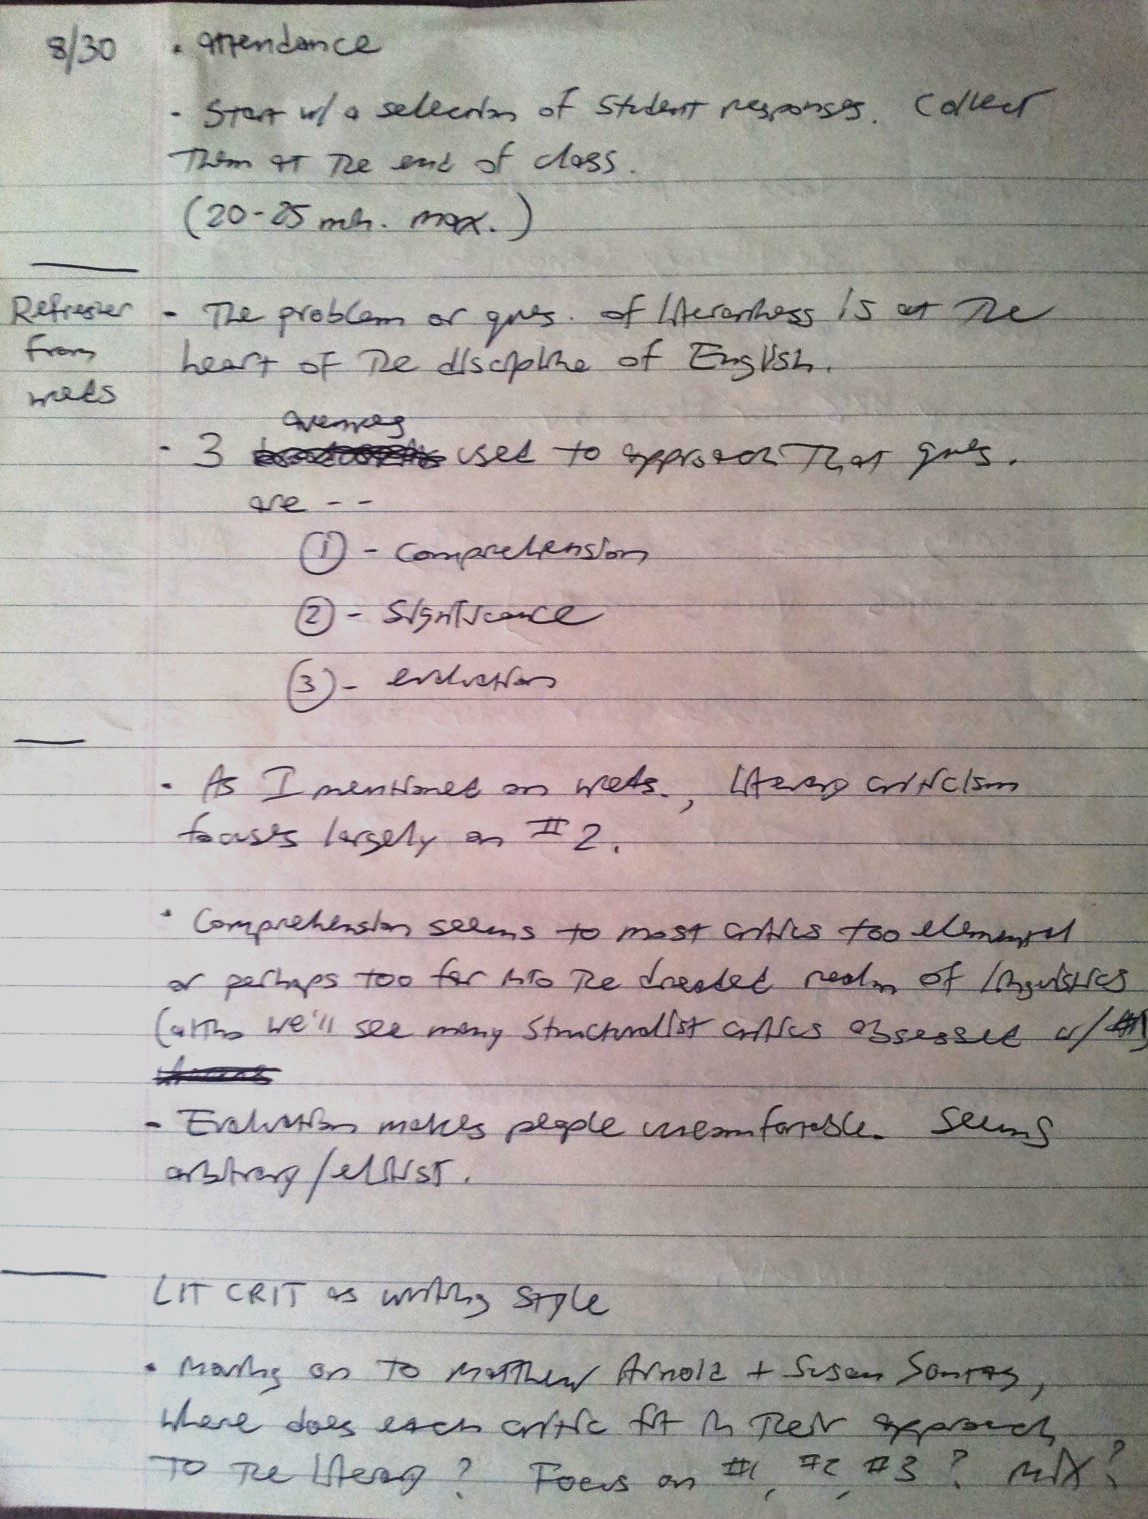 8/30 · attendance
- Start w/ a selection of student responses. Collect
them at the end of class.
(20-25 min. max.)
Refresher from weds
- The problem or ques. of literariness is at the
heart of the discipline of English.
avenues
- 3 used to approach that ques.
are --
① - comprehension
② - significance
③ - evaluation
- As I mentioned on weds., literary criticism
focuses largely on #2.
· Comprehension seems to most critics too elemental
or perhaps too far into the dreaded realm of linguistics
(altho we'll see many structuralist critics obsessed w/ #1)
- Evaluation makes people uncomfortable. Seems
arbitrary/elitist.
LIT CRIT as writing style
· Moving on to Matthew Arnold + Susan Sontag,
where does each critic fit in their approach
to the literary? Focus on #1, #2, #3? Mix?